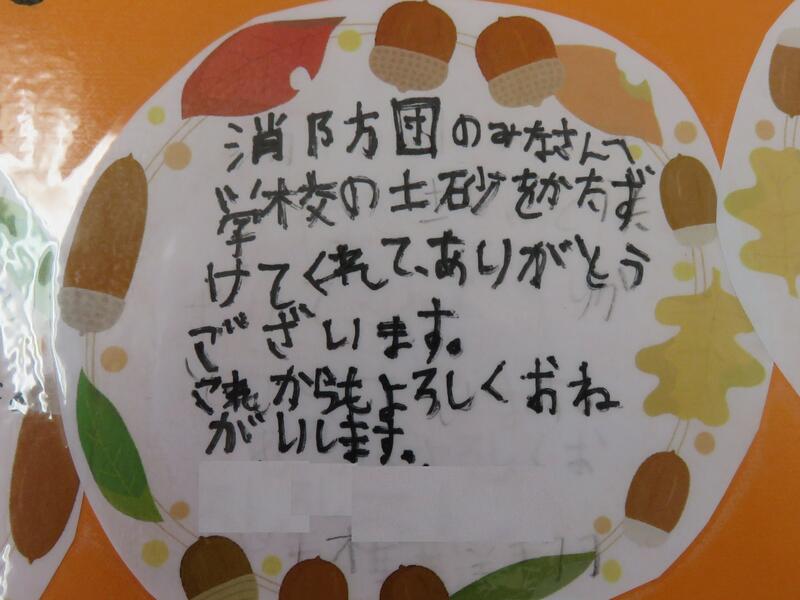 消防方団のみなさんへ
学校の土砂をかたず
けてくれて、ありがとう
ございます。
これからもよろしくおね
がいします。